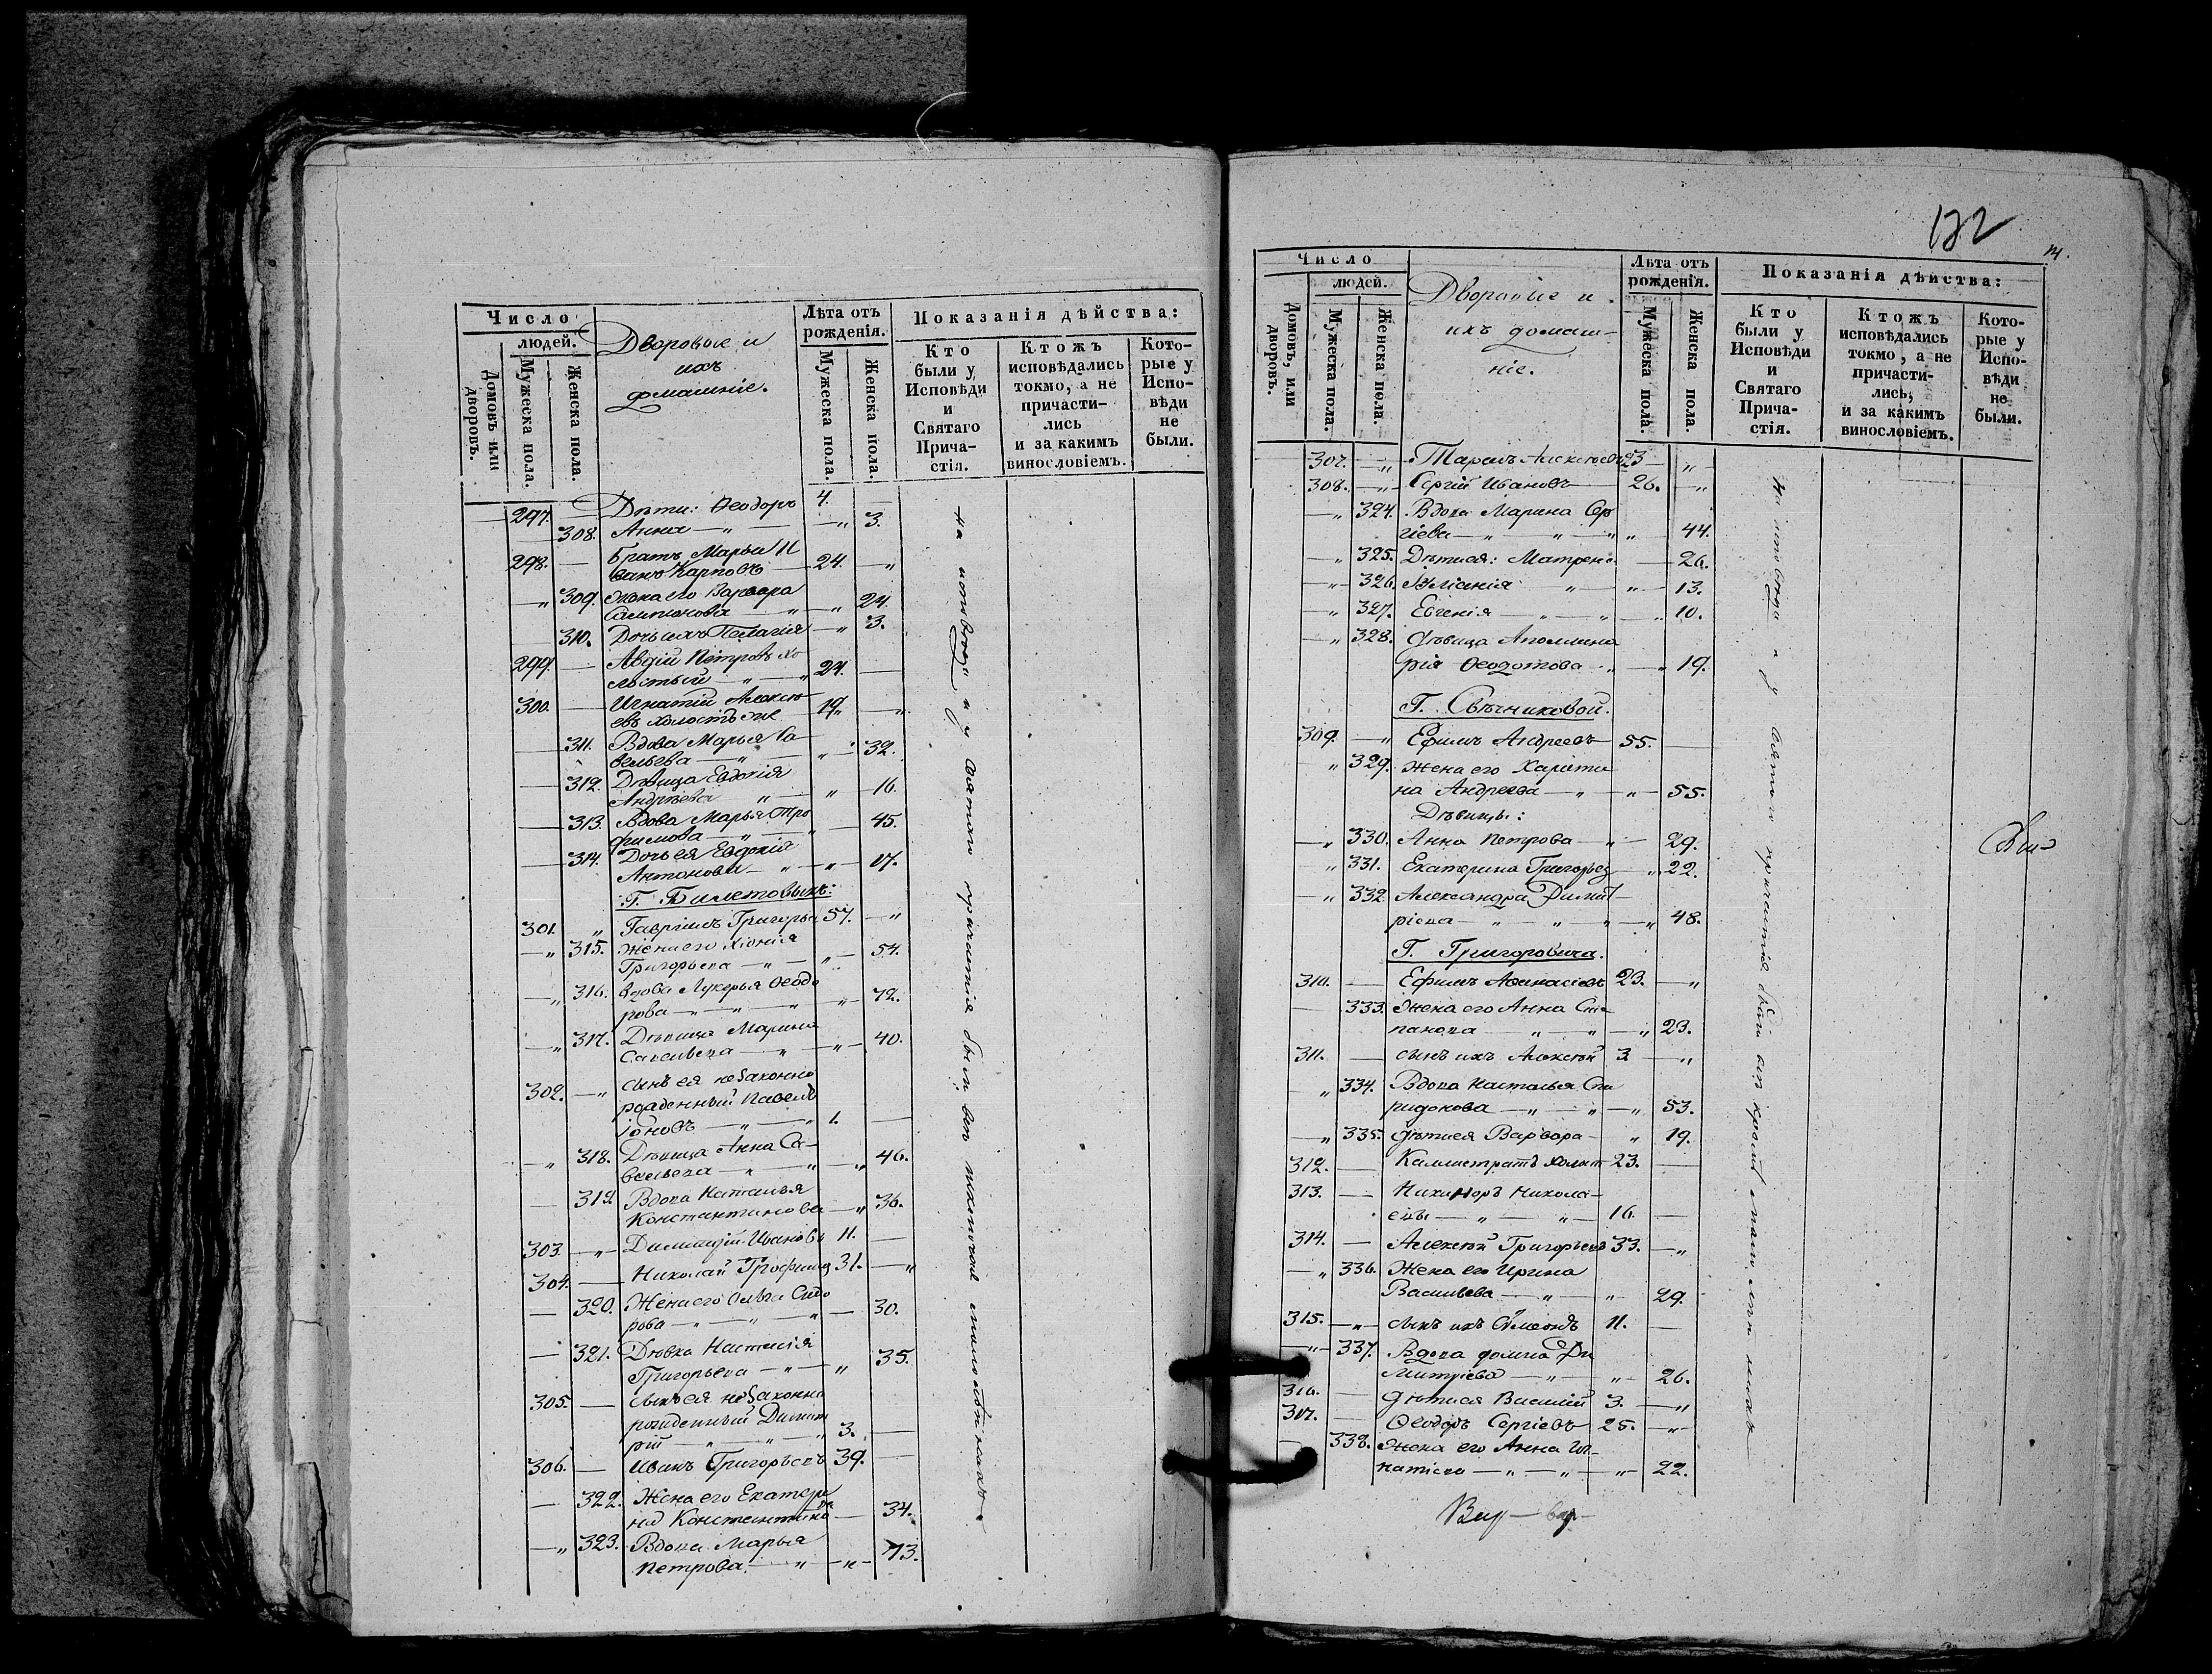 Число
людей.
Домовъ или дворовъ.
Мужеска пола.
Женска пола.
Дворовые и
ихъ
домашніе.
Лѣта отъ
рожденія.
Мужеска пола.
Женска пола.
Показанія дѣйства:
Кто
были у
Исповѣди
и
Святаго
Прича-
стія.
Ктожъ
исповѣдались
токмо, а не
причасти-
лись
и за какимъ
винословіемъ.
Кото-
рые у
Испо-
вѣди
не
были.
297. — Дѣти: Ѳеодоръ 4. —
308. Анна — „ — — „ 3.
298. — Братъ Марьи И
ванъ Карповъ — 24. — „
— „ 309. Жена его Варвара
Сампсонова — „ — „ 24.
310. Дочь ихъ Пелагія — „ 3.
299. — Авдій Петровъ хо
лостый — „ — „ 24. —
300. — Игнатій Алексѣ
евъ холостъ же — 19. — „
— 311. Вдова Марья Са
вельева — „ — „ 32.
— 312. Дѣвица Евдокія
Андрѣева „ — „ — 16.
— 313. Вдова Марья Тро
фимова — „ — „ — 45.
— 314. Дочь ея Евдокія
Антонова — „ — „ 17.
Г. Билетовыхъ:
301. „ Гавріилъ Григорье 57. — „
— „ 315. Жена его Хіонія
Григорьева — „ — „ — 54.
— „ 316. Вдова Лукерья Ѳеодо
рова — „ — „ — „ — 72.
— „ 317. Дѣвица Марина
Савельева — „ — „ — 40.
302. — „ Сынъ ея незаконно
рожденный Павелъ
Іоновъ — „ — „ 1. —
— „ 318. Дѣвица Анна Са-
вельева — „ — „ — „ 46.
— 319. Вдова Наталья
Константинова — „ 36.
303. — „ — Димитрій Ивановъ 11. —
304. — Николай Трофимо 31. — „
— 320. Жена его Ольга Сидо
рова — „ — „ — „ — 30.
— 321. Дѣвка Настасія
Григорьева — „ — „ 35.
305. — Сынъ ея незаконно
рожденный Димит
рій — „ — „ — „ 3. —
306. — Иванъ Григорьевъ 39. —
— 322. Жена его Екатери
на Константинова — 34.
— „ 323. Вдова Марья
Петрова — „ — „ — 73.
132
Число
людей.
Домовъ, или дворовъ.
Мужеска пола.
Женска пола.
Дворовые и
ихъ домаш-
ніе.
Лѣта отъ
рожденія.
Мужеска пола.
Женска пола.
Показанія дѣйства:
Кто
были у
Исповѣди
и
Святаго
Прича-
стія.
Ктожъ
исповѣдались
токмо, а не
причасти-
лись,
и за какимъ
винословіемъ.
Кото-
рые у
Испо-
вѣди
не
были.
307. — „ — Тарасъ Алексѣевъ 23 — „ —
308. — „ — Сергій Ивановъ — 26. — „
— „ 324. Вдова Марина Сер
гіева — „ — „ — „ „ — 44.
— „ 325. Дѣти ея: Матрена — 26.
— „ — 326. Іуліанія „ — „ — 13.
— „ 327. Евгенія — „ — „ — „ 10.
— „ 328. Дѣвица Аполлина
рія Ѳеодотова „ — „ 19.
Г. Свѣчниковой.
309. — „ Ефимъ Андреевъ — 55. —
„ 329. Жена его Харити
на Андреева — „ — „ — 55.
Дѣвицы:
— „ 330. Анна Петрова — „ — 29.
„ 331. Екатерина Григорьев — „ 22.
— „ 332 Александра Димит
ріева — „ „ „ — „ 48.
Г. Григоровича.
310. — Ефимъ Аѳанасіевъ 23. — „
— 333. Жена его Анна Сте
панова „ „ — „ 23.
311. — Сынъ ихъ Алексѣй 3 — „
„ 334. Вдова Наталья Спи
ридонова — „ — „ — „ 53.
— „ 335. Дѣти ея Варвара — „ 19.
312. — Каллистратъ холост 23. —
313. — Никаноръ Никола-
евъ — „ — „ — 16. —
314. — Алексѣй Григорьевъ 33. — „
— „ 336. Жена его Ирина
Васильева — „ — „ 29.
315. — „ — Сынъ ихъ Симеонъ 11. —
— „ — 337. Вдова Домна Ди
митріева — „ — „ — 26.
316. — Дѣти ея Василій 3. — „
317. — Ѳеодоръ Сергіевъ 25. — „ —
— 338. Жена его Анна Иг-
натіева — „ — „ — „ — 22.